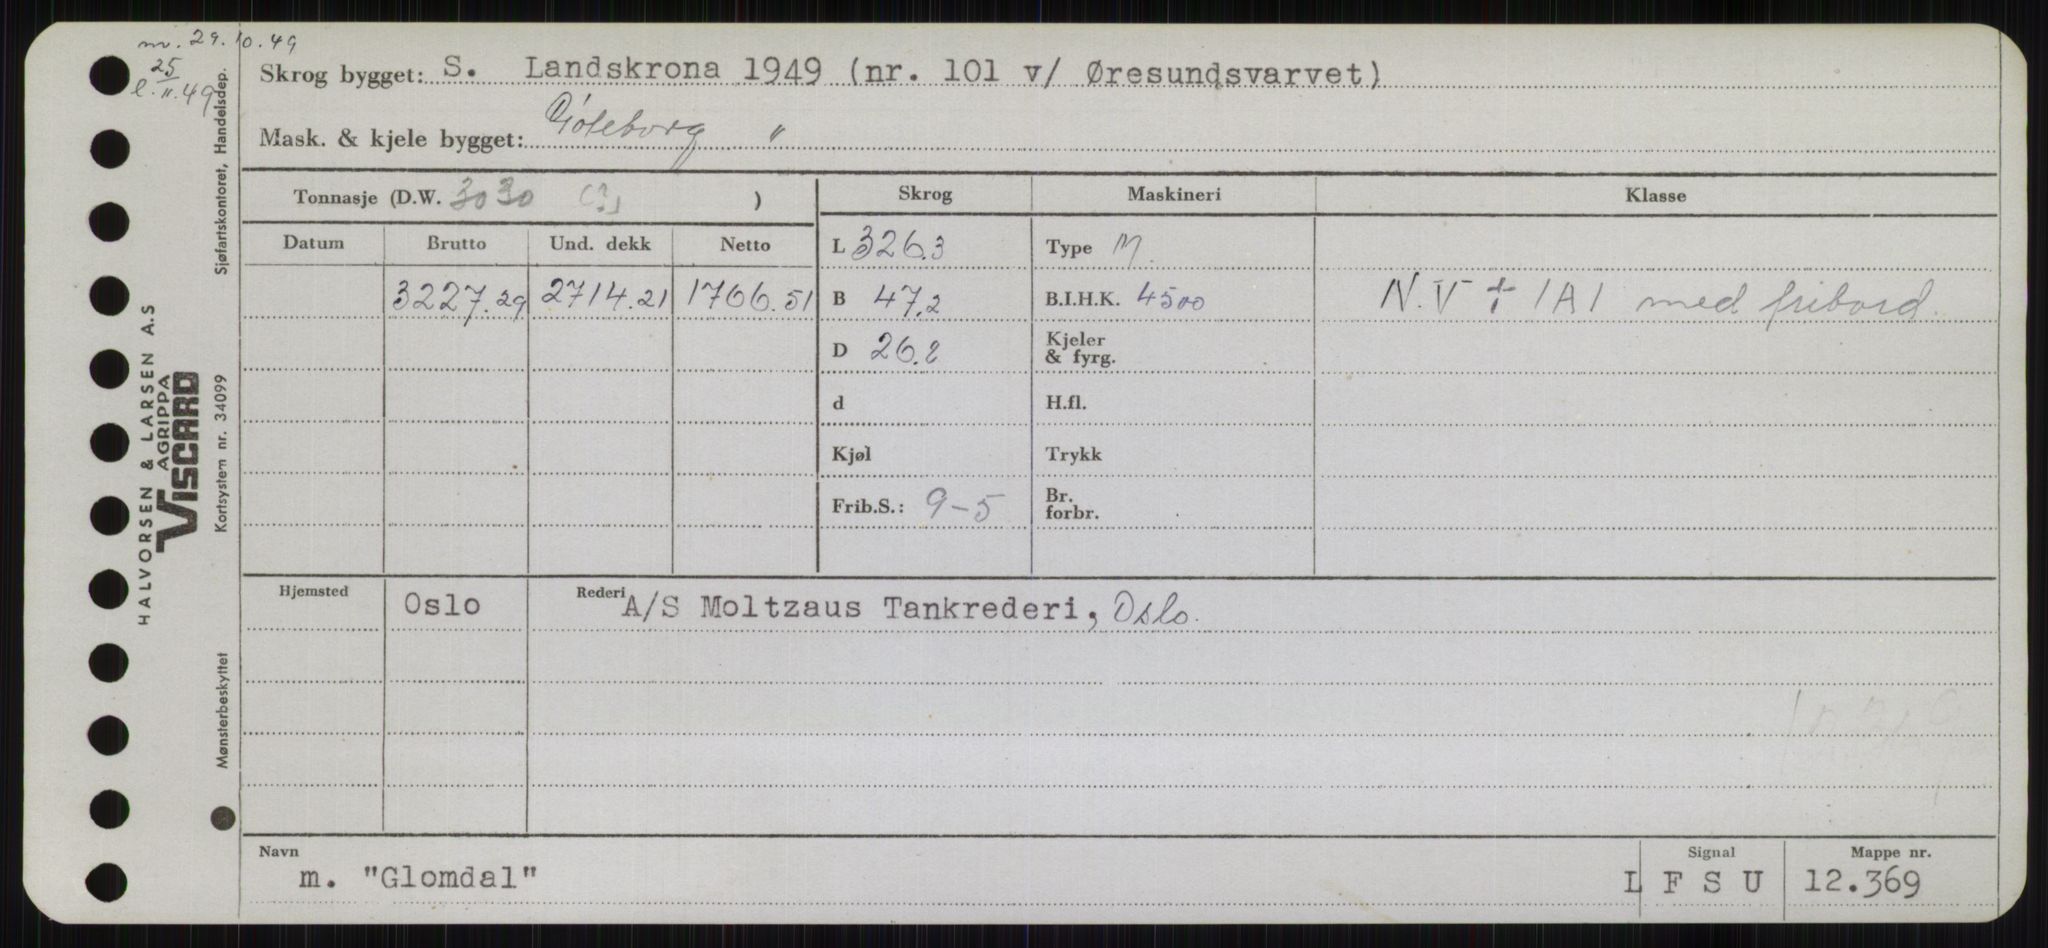 m. 29.10.49
25
l. 11.49
Skrog bygget: S. Landskrona 1949 (nr. 101 v/ Øresundsvarvet)
Mask. & kjele bygget: Göteborg "
Tonnasje (D.W. 3030 (?) )
Skrog
Maskineri
Klasse
Datum
Brutto
Und. dekk
Netto
L 326.3
Type M.
3227.29
2714.21
1766.51
B 47.2
B.I.H.K. 4500
N.V + 1A1 med fribord.
D 26.2
Kjeler
& fyrg.
d
H.fl.
Kjøl
Trykk
Frib.S.: 9-5
Br.
forbr.
Hjemsted
Oslo
Rederi
A/S Moltzaus Tankrederi, Oslo.
Navn
m. "Glomdal"
Signal
L F S U
Mappe nr.
12.369
HALVORSEN & LARSEN A.S
AGRIPPA
VISCARD
Sjøfartskontoret, Handelsdep.
Kortsystem nr. 34099
Mønsterbeskyttet